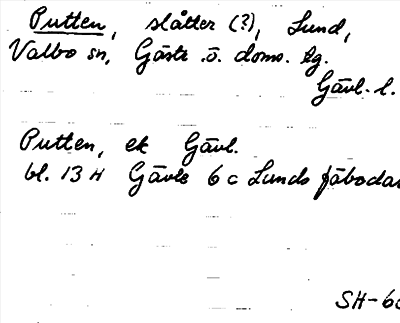 Putten, slåtter (?), Lund,
Valbo sn, Gästr. ö. doms. tg.
Gävl. l.
Putten, ek Gävl.
bl. 13 H Gävle 6 c Lunds fäbodar
SH-60